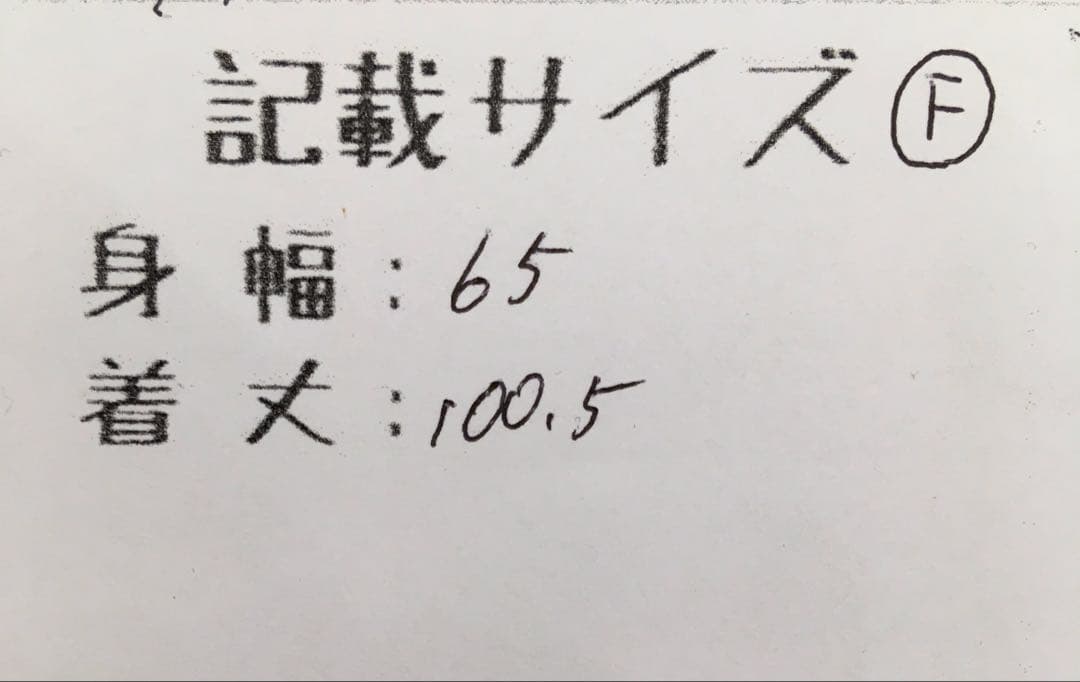 記載サイズ Ⓕ
身幅:65
着丈:100.5